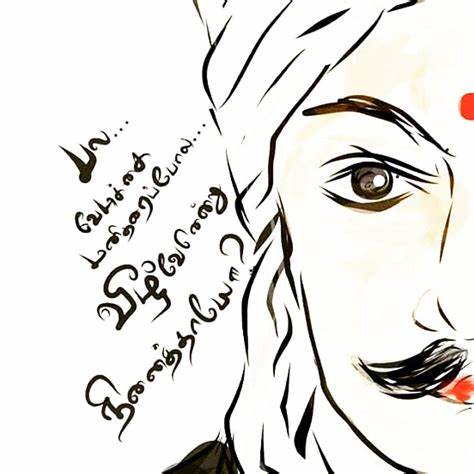 பல...
வேடிக்கை
மனிதரைப்போல...
வீழ்வேனென்று
நினைத்தாயோ?